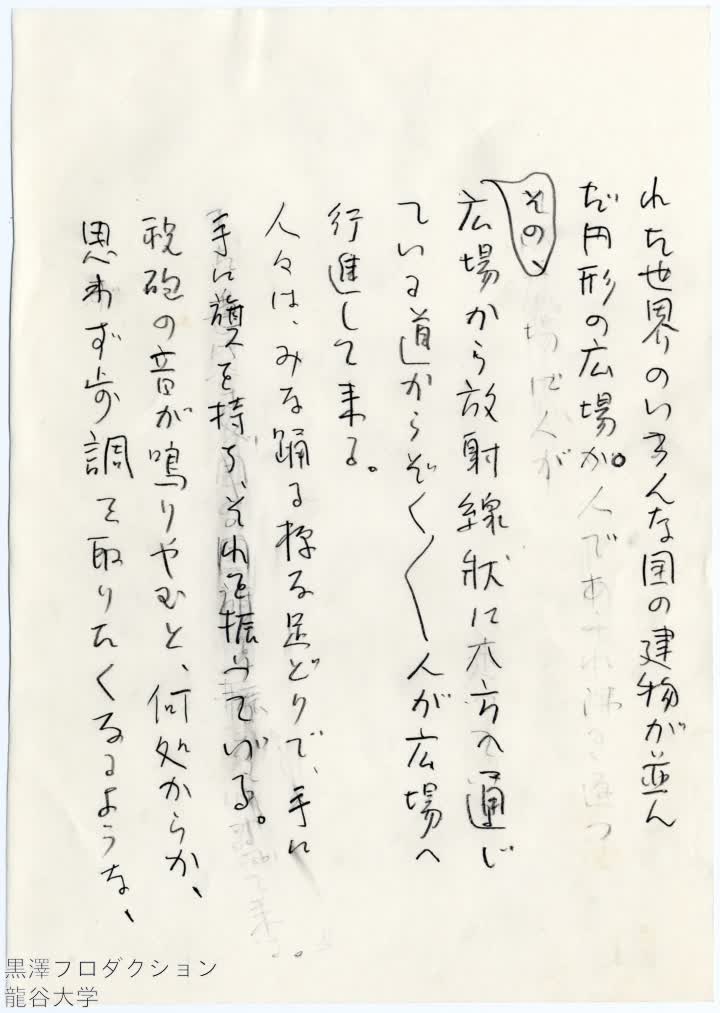 れた世界のいろんな国の建物が並ん
だ円形の広場が。人で
その、
は人が
広場から放射線状に六方へ通じ
ている道からぞく〱人が広場へ
行進して来る。
人々は、みな踊る様な足どりで、手に
手に旗を持ち、それを振つてゐる。
祝砲の音が鳴りやむと、何処からか、
思わず歩調を取りたくなるような、
黒澤プロダクション
龍谷大学